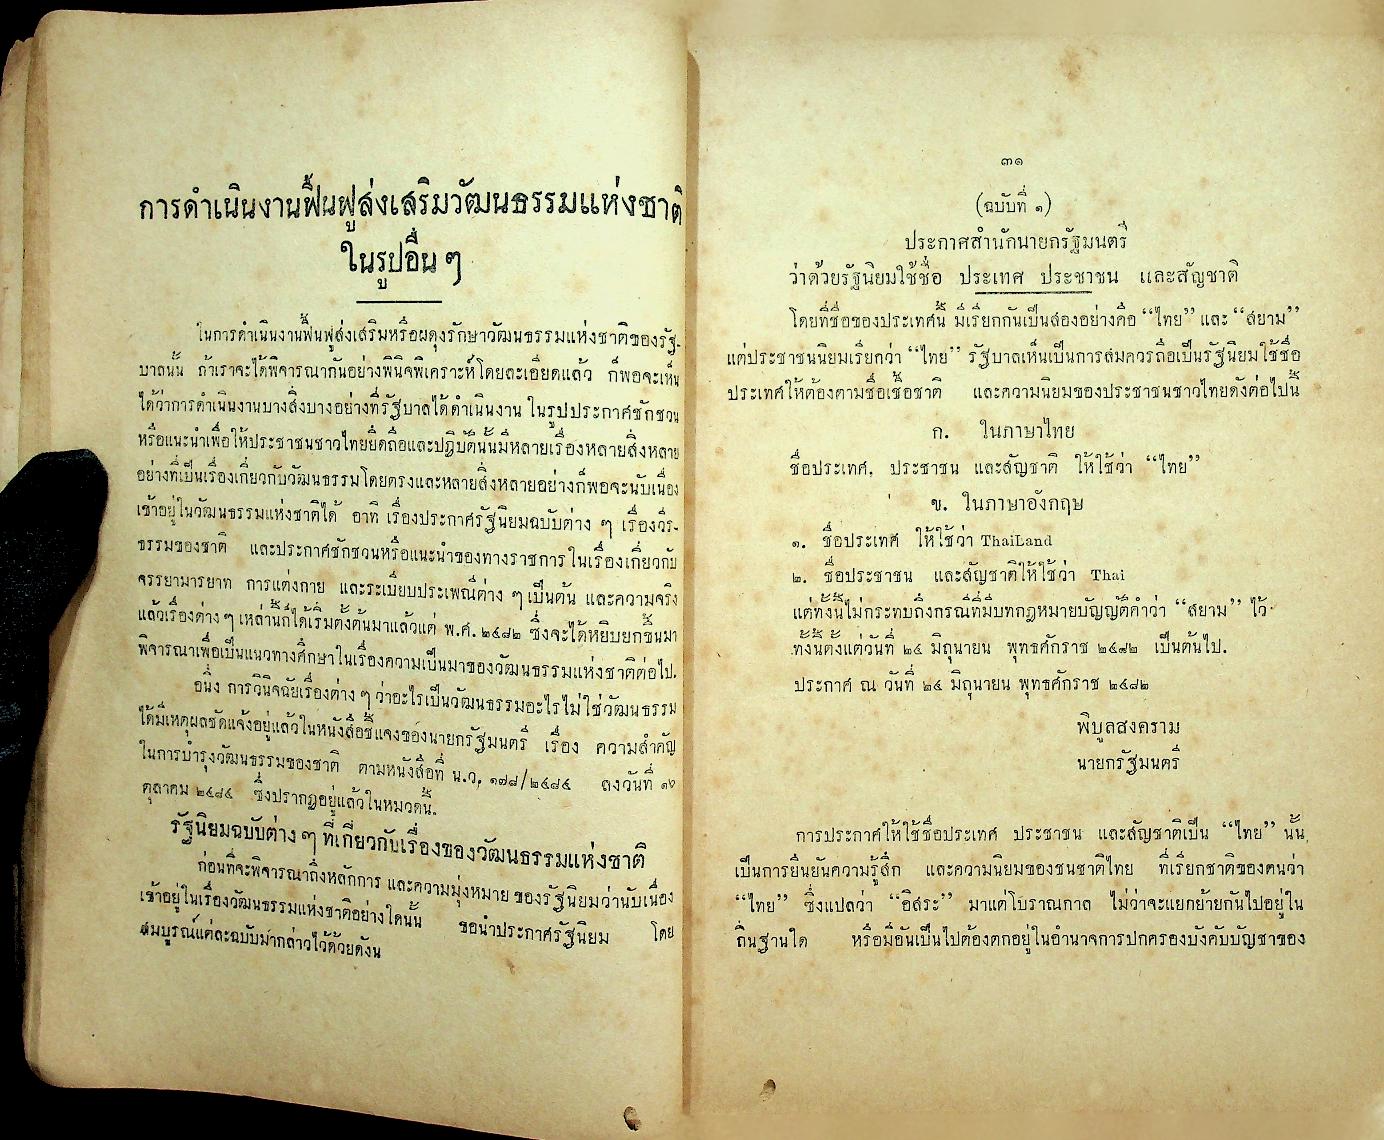 การดำเนินงานฟื้นฟูส่งเสริมวัฒนธรรมแห่งชาติ
ในรูปอื่น ๆ
ในการดำเนินงานฟื้นฟูส่งเสริมหรือผดุงรักษาวัฒนธรรมแห่งชาติของรัฐ-
บาลนั้น ถ้าเราจะได้พิจารณากันอย่างพินิจพิเคราะห์โดยละเอียดแล้ว ก็พอจะเห็น
ได้ว่าการดำเนินงานบางสิ่งบางอย่างที่รัฐบาลได้ดำเนินงาน ในรูปประกาศชักชวน
หรือแนะนำเพื่อให้ประชาชนชาวไทยยึดถือและปฏิบัตินั้นมีหลายเรื่องหลายสิ่งหลาย
อย่างที่เป็นเรื่องเกี่ยวกับวัฒนธรรมโดยตรงและหลายสิ่งหลายอย่างก็พอจะนับเนื่อง
เข้าอยู่ในวัฒนธรรมแห่งชาติได้ อาทิ เรื่องประกาศรัฐนิยมฉบับต่าง ๆ เรื่องวีร-
ธรรมของชาติ และประกาศชักชวนหรือแนะนำของทางราชการในเรื่องเกี่ยวกับ
จรรยามารยาท การแต่งกาย และระเบียบประเพณีต่าง ๆ เป็นต้น และความจริง
แล้วเรื่องต่าง ๆ เหล่านี้ก็ได้เริ่มตั้งต้นมาแล้วแต่ พ.ศ. ๒๔๘๒ ซึ่งจะได้หยิบยกขึ้นมา
พิจารณาเพื่อเป็นแนวทางศึกษาในเรื่องความเป็นมาของวัฒนธรรมแห่งชาติต่อไป.
อนึ่ง การวินิจฉัยเรื่องต่าง ๆ ว่าอะไรเป็นวัฒนธรรมอะไรไม่ใช่วัฒนธรรม
ได้มีเหตุผลชัดแจ้งอยู่แล้วในหนังสือชี้แจงของนายกรัฐมนตรี เรื่อง ความสำคัญ
ในการบำรุงวัฒนธรรมของชาติ ตามหนังสือที่ น.ว. ๑๗๘/๒๔๘๔ ลงวันที่ ๑๖
ตุลาคม ๒๔๘๔ ซึ่งปรากฏอยู่แล้วในหมวดนี้.
รัฐนิยมฉบับต่าง ๆ ที่เกี่ยวกับเรื่องของวัฒนธรรมแห่งชาติ
ก่อนที่จะพิจารณาถึงหลักการ และความมุ่งหมาย ของรัฐนิยมว่านับเนื่อง
เข้าอยู่ในเรื่องวัฒนธรรมแห่งชาติอย่างใดนั้น ขอนำประกาศรัฐนิยม โดย
สมบูรณ์แต่ละฉบับมากล่าวไว้ด้วยดังน
๓๑
(ฉบับที่ ๑)
ประกาศสำนักนายกรัฐมนตรี
ว่าด้วยรัฐนิยมใช้ชื่อ ประเทศ ประชาชน และสัญชาติ
โดยที่ชื่อของประเทศนี้ มีเรียกกันเป็นสองอย่างคือ “ไทย” และ “สยาม”
แต่ประชาชนนิยมเรียกว่า “ไทย” รัฐบาลเห็นเป็นการสมควรถือเป็นรัฐนิยมใช้ชื่อ
ประเทศให้ต้องตามชื่อเชื้อชาติ และความนิยมของประชาชนชาวไทยดังต่อไปนี้
ก. ในภาษาไทย
ชื่อประเทศ, ประชาชน และสัญชาติ ให้ใช้ว่า “ไทย”
ข. ในภาษาอังกฤษ
๑. ชื่อประเทศ ให้ใช้ว่า ThaiLand
๒. ชื่อประชาชน และสัญชาติให้ใช้ว่า Thai
แต่ทั้งนี้ไม่กระทบถึงกรณีที่มีบทกฎหมายบัญญัติคำว่า “สยาม” ไว้
ทั้งนี้ตั้งแต่วันที่ ๒๔ มิถุนายน พุทธศักราช ๒๔๘๒ เป็นต้นไป.
ประกาศ ณ วันที่ ๒๔ มิถุนายน พุทธศักราช ๒๔๘๒
พิบูลสงคราม
นายกรัฐมนตรี
การประกาศให้ใช้ชื่อประเทศ ประชาชน และสัญชาติเป็น “ไทย” นั้น
เป็นการยืนยันความรู้สึก และความนิยมของชนชาติไทย ที่เรียกชาติของตนว่า
“ไทย” ซึ่งแปลว่า “อิสระ” มาแต่โบราณกาล ไม่ว่าจะแยกย้ายกันไปอยู่ใน
ถิ่นฐานใด หรือมีอันเป็นไปต้องตกอยู่ในอำนาจการปกครองบังคับบัญชาของ